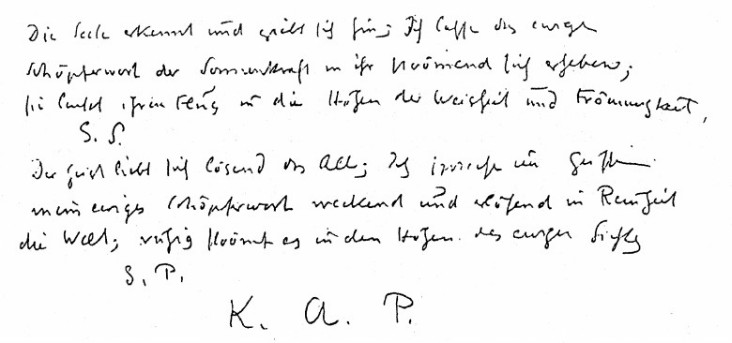 Die Seele erkennt und giebt sich hin; Ich lasse das ewige
Schöpferwort der Sonnenkraft in ihr strömend sich erheben;
sie lenket ihren Flug in die Höhen der Weisheit und Frömmigkeit,
S. S.
Der Geist liebt sich lösend das All; Ich im
mein ewiges Schöpferwort weckend und erlösend in Reinheit
die Welt; ruhig strömt es in den Höhen des ewgen
S. P.
K. A. P.